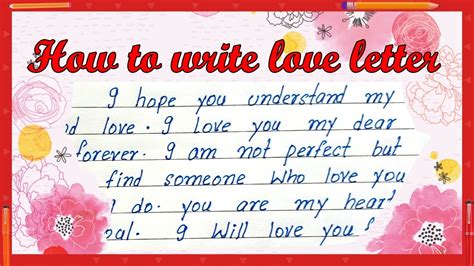 How to write love letter
I hope you understand my
d love. I love you my dear
forever. I am not perfect but
find someone who love you
I do. you are my heart
eal. I Will love you f